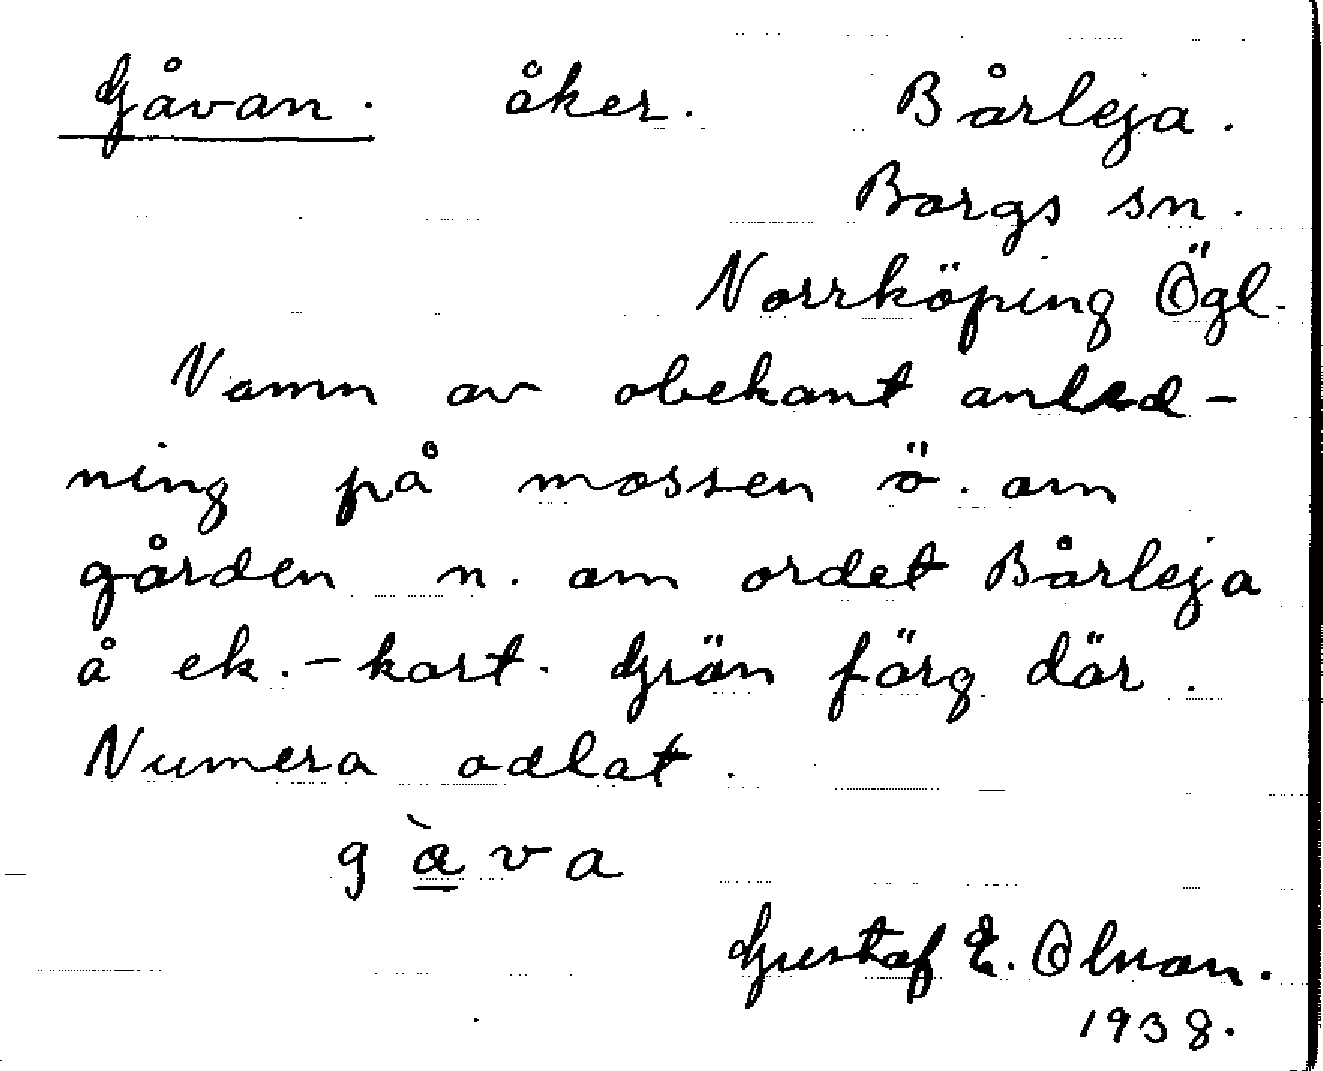 Gåvan. åker. Bårleja.
Borgs sn.
Norrköping Ögl.
Namn av obekant anled-
ning på mossen ö. om
gården n. om ordet Bårleja
å ek.-kart. Grön färg där.
Numera odlat.
g à v a
Gustaf E. Olman.
1938.